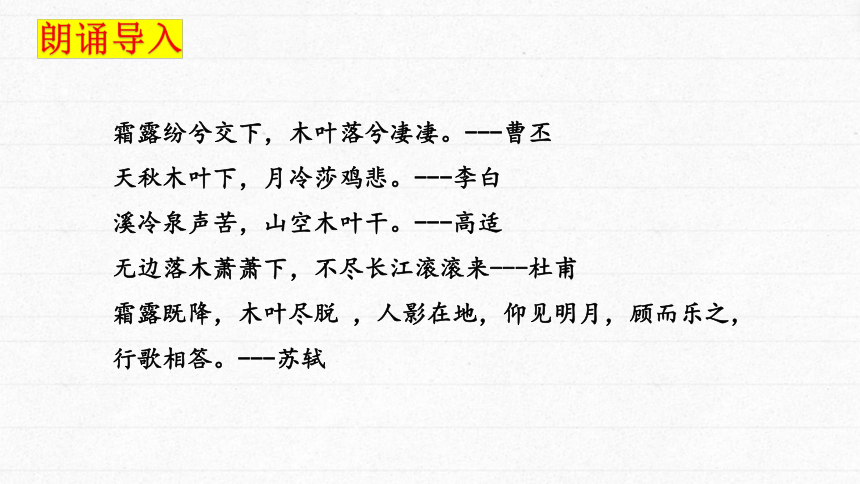 朗诵导入
霜露纷兮交下，木叶落兮凄凄。---曹丕
天秋木叶下，月冷莎鸡悲。---李白
溪冷泉声苦，山空木叶干。---高适
无边落木萧萧下，不尽长江滚滚来---杜甫
霜露既降，木叶尽脱 ，人影在地，仰见明月，顾而乐之，
行歌相答。---苏轼